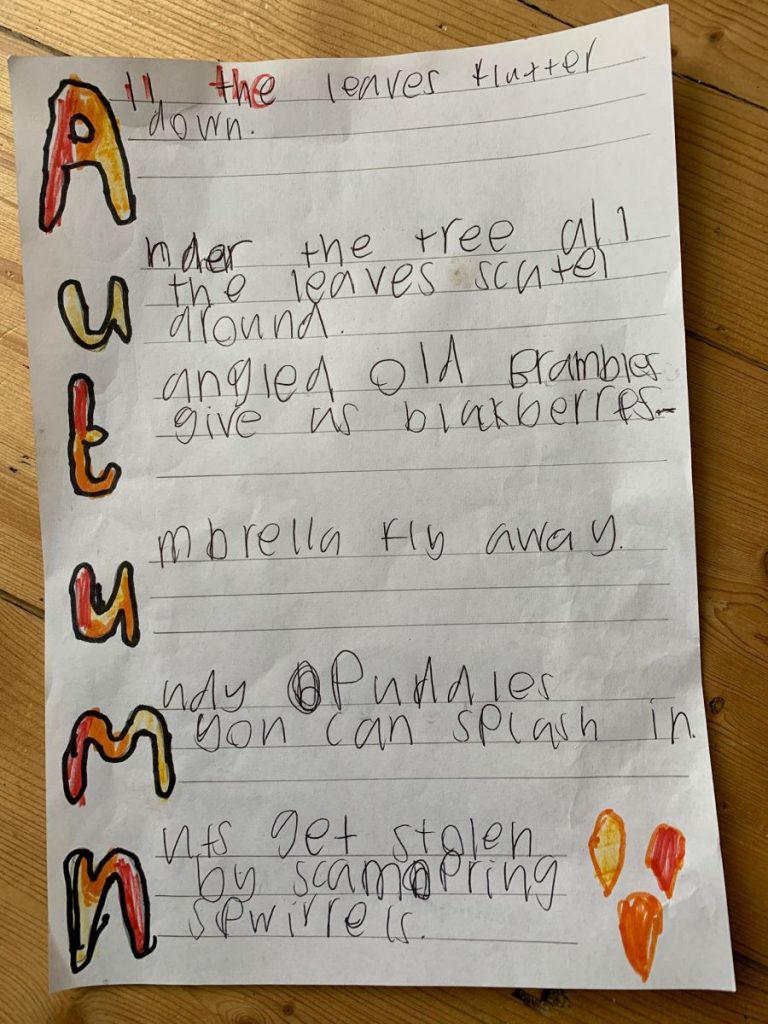 All the leaves flutter
down.
under the tree all
the leaves scater
around.
tangled old Brambles
give us blakberres.
umbrella fly away.
Mudy Puddles
you can splash in.
nuts get stolen
by scampring
spwirrels.